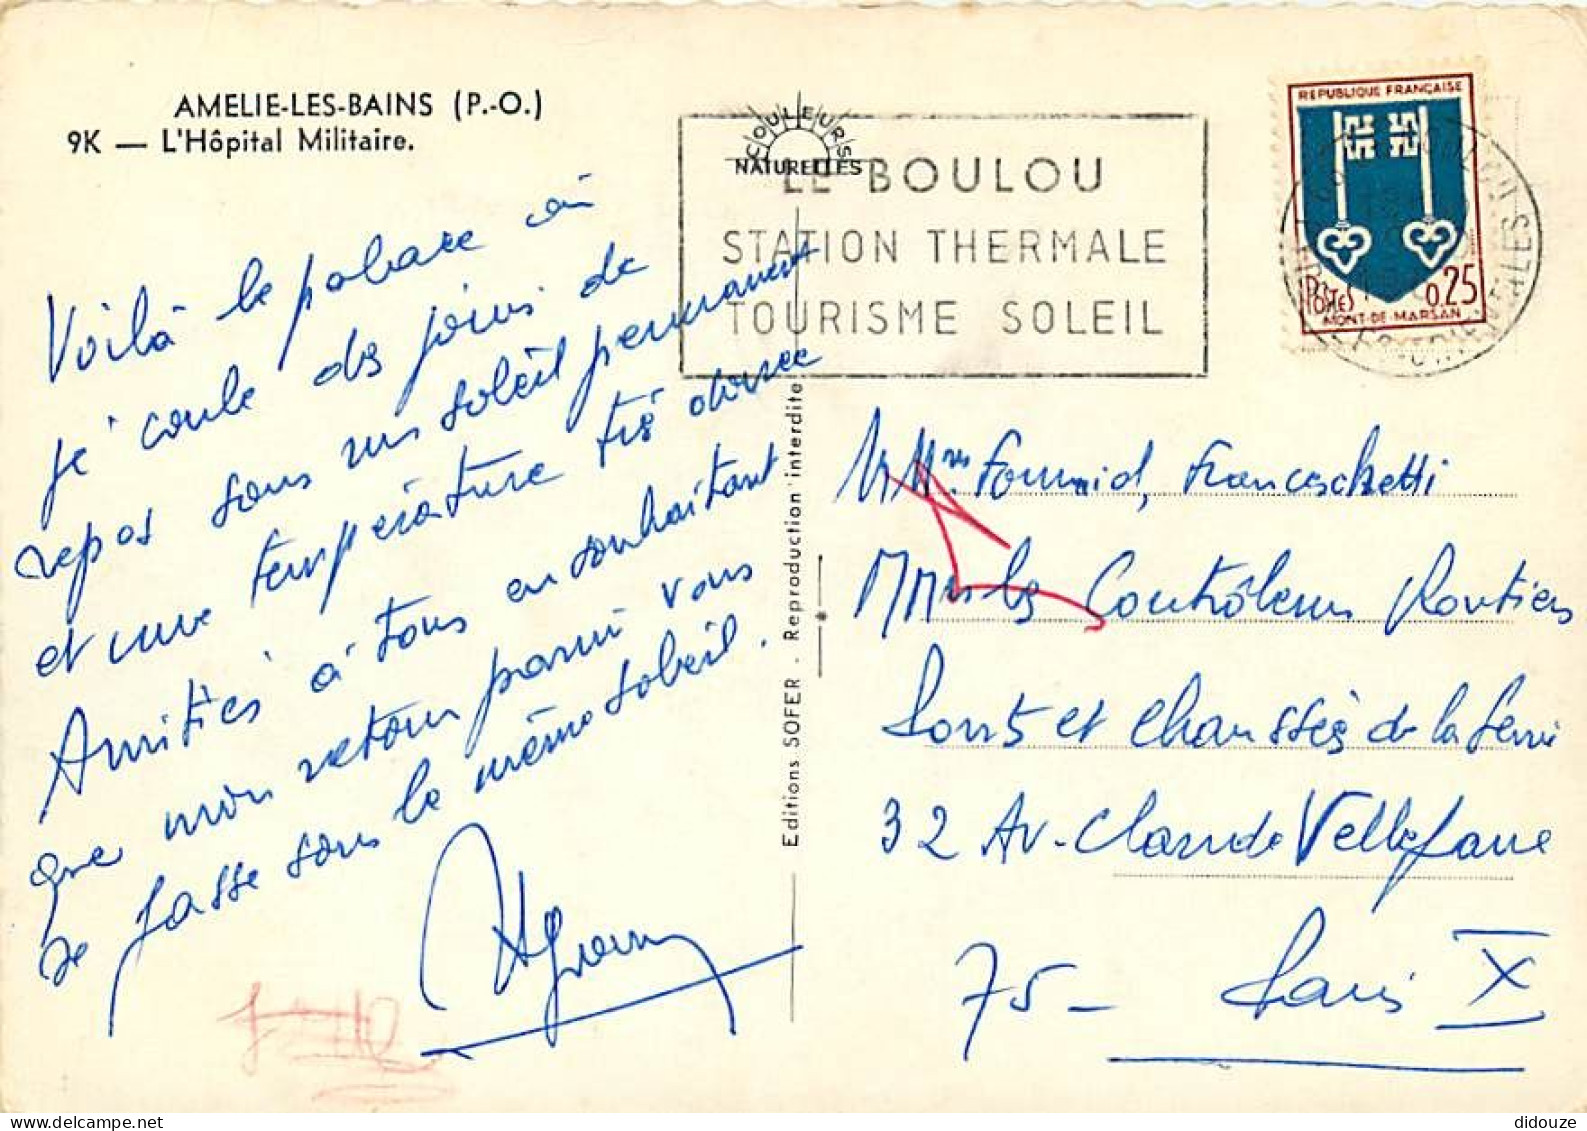 AMELIE-LES-BAINS (P.-O.)
9K — L'Hôpital Militaire.
COULEURS
NATURELLES
LE BOULOU
STATION THERMALE
TOURISME SOLEIL
REPUBLIQUE FRANÇAISE
POSTES 0,25
MONT-DE-MARSAN
Voilà le palace où
je coule des jours de
repos sous un soleil permanent
et une température très douce
Amitiés à tous en souhaitant
que mon retour parmi vous
se fasse sous le même soleil.
Editions SOFER - Reproduction interdite
Franceschetti
les Contrôleurs Routiers
Ponts et Chaussées de la Seine
32 Av. Claude Vellefaue
75 - Paris X
didouze